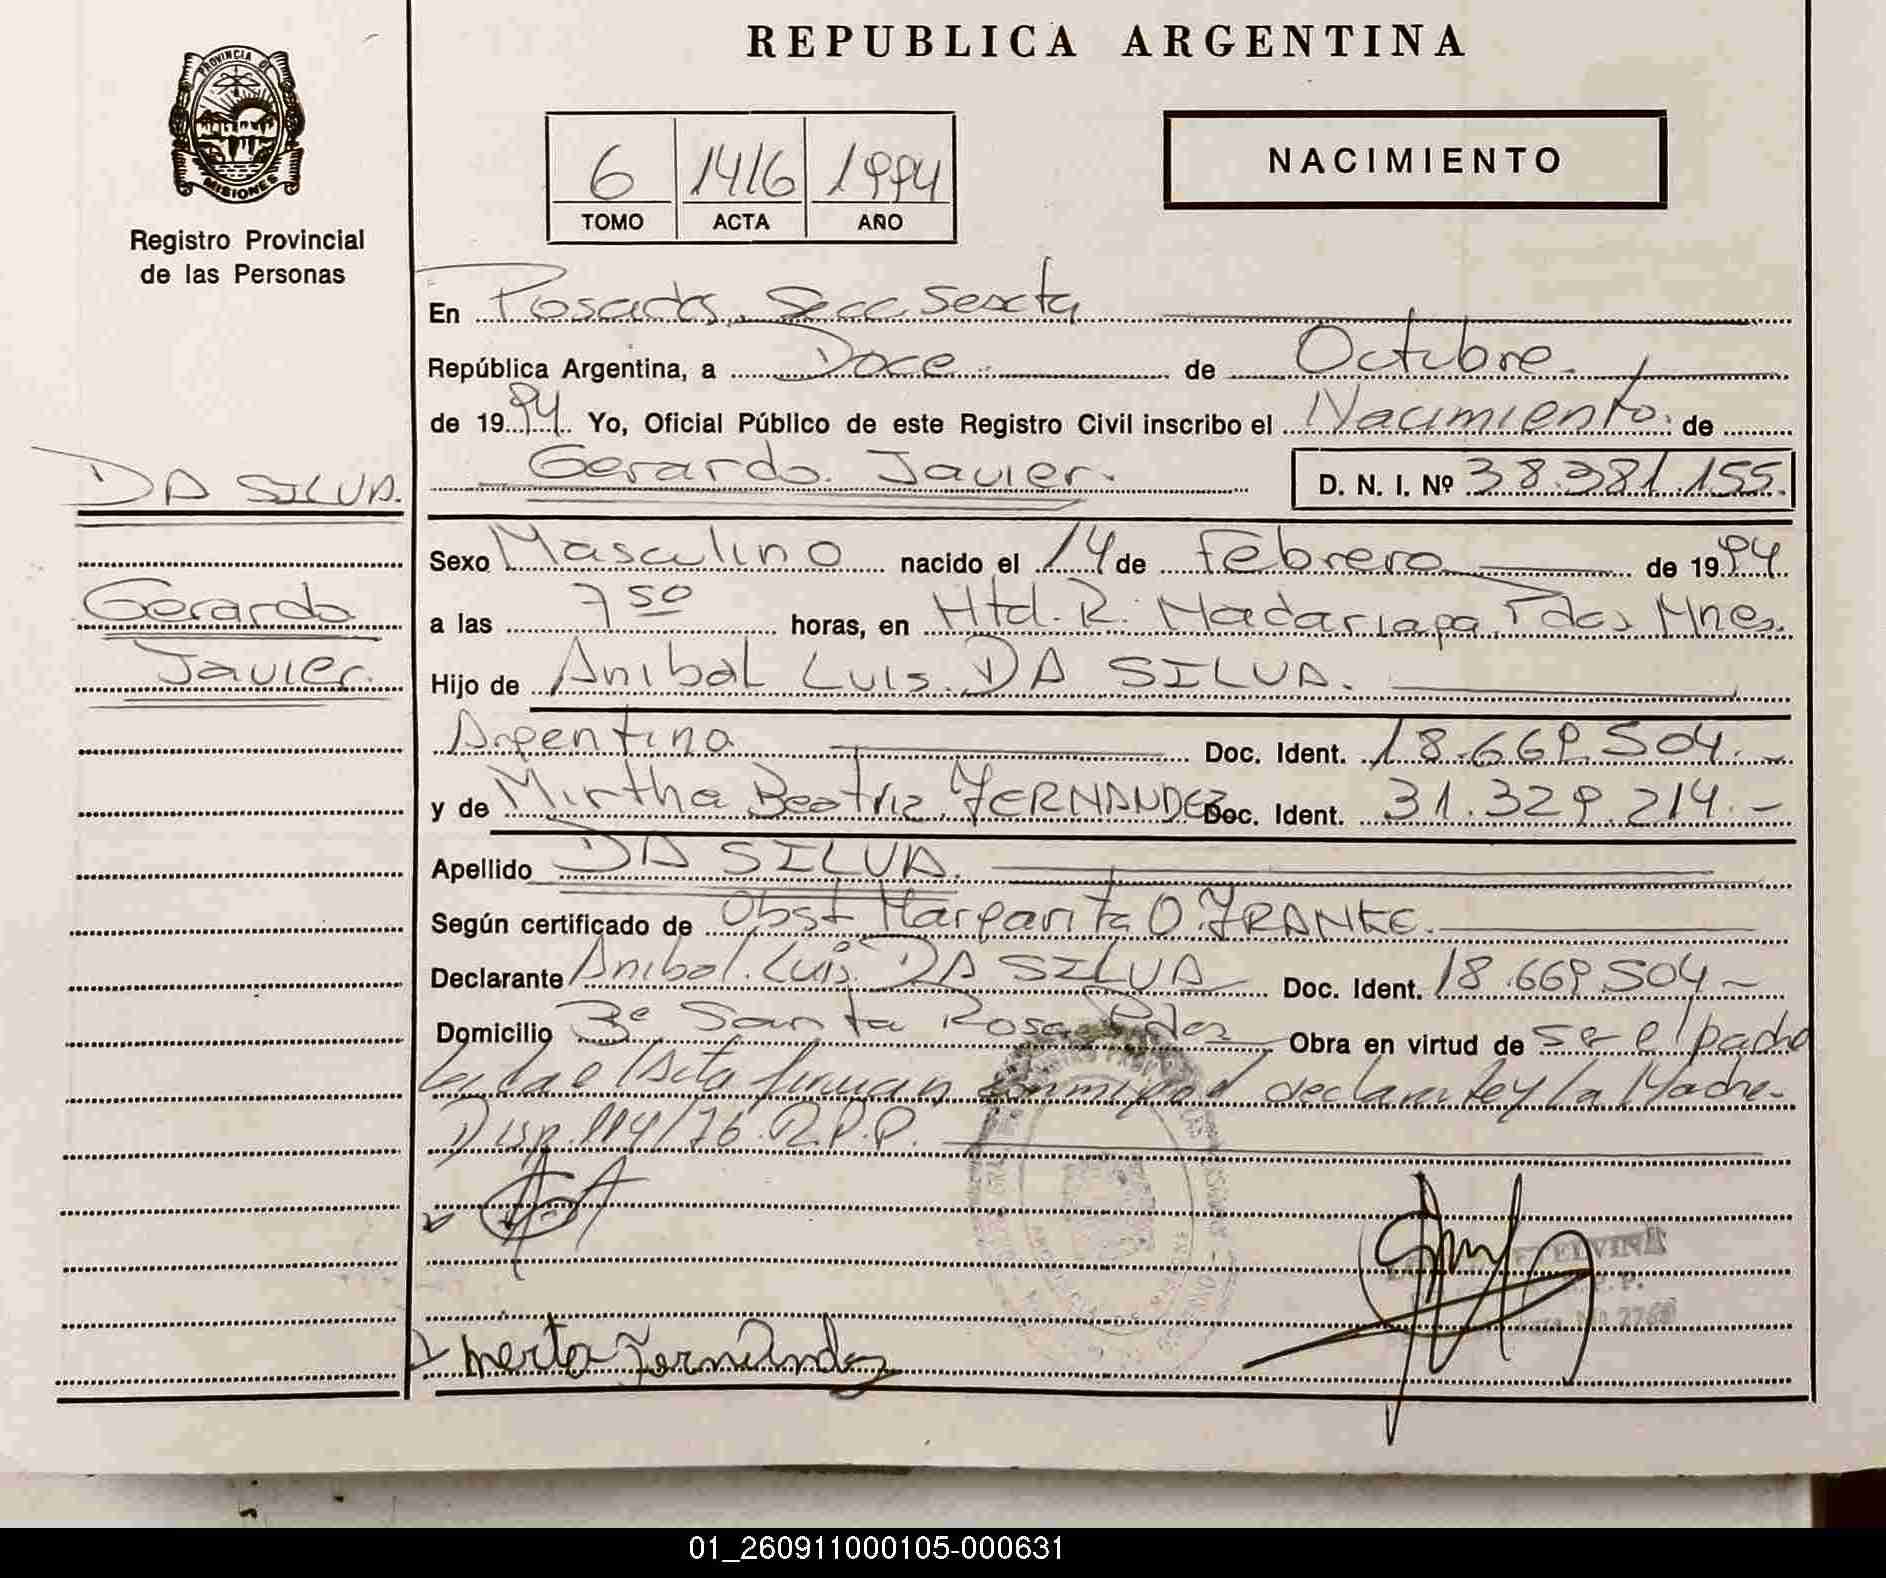 REPUBLICA ARGENTINA
PROVINCIA D
MISIONES
Registro Provincial
de las Personas
6 1416 1994
TOMO ACTA AÑO
NACIMIENTO
En Posadas, Secc. Sexta
República Argentina, a Doce de Octubre.
de 1994. Yo, Oficial Público de este Registro Civil inscribo el Nacimiento. de
Gerardo Javier. D. N. I. Nº 38.381.155.
DA SILVA.
Gerardo
Javier.
Sexo Masculino nacido el 14 de Febrero de 1994
a las 7 50 horas, en Htal. R. Madariaga, Pdas Mnes.
Hijo de Anibal Luis. DA SILVA.
Argentina Doc. Ident. 18.669.504.-
y de Mirtha Beatriz. FERNANDEZ Doc. Ident. 31.329.214.-
Apellido DA SILVA.
Según certificado de Obst. Margarita O. FRANKE.
Declarante Anibal. Luis. DA SILVA Doc. Ident. 18.669.504-
Domicilio Bº Santa Rosa Pdas Obra en virtud de ser el padre
Leida el Acta firman conmigo el declarante y la Madre.
Disp. 994/76. R.P.P.
merta Fernandez
ELVINA
Nº 2768
01_260911000105-000631